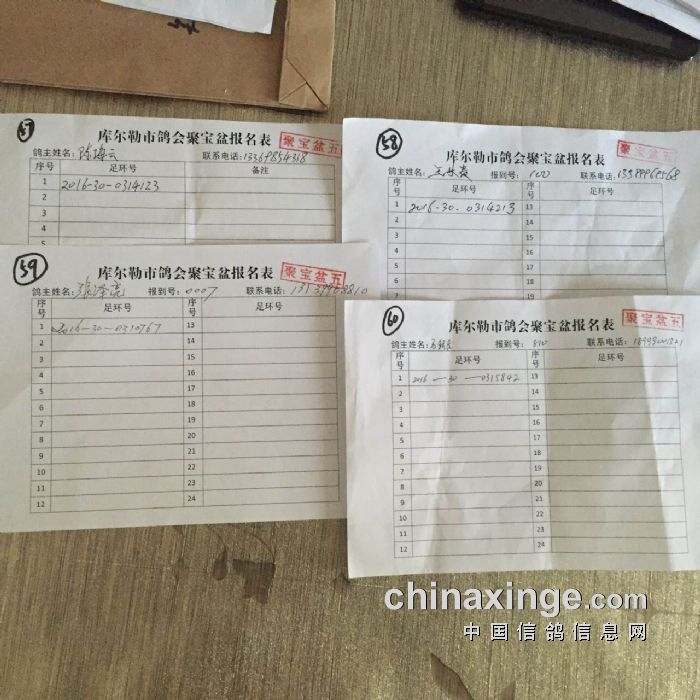 57
库尔勒市鸽会聚宝盆报名表
聚宝盆五
鸽主姓名： 联系电话：13369854318
序号 足环号 备注
1 2016-30-0314123
2
3
4
5
58
库尔勒市鸽会聚宝盆报名表
聚宝盆五
鸽主姓名： 报到号：100 联系电话：
序号 足环号 序号 足环号
1 2016-30-0314213 13
2 14
3 15
4 16
5 17
6 18
7 19
59
库尔勒市鸽会聚宝盆报名表
聚宝盆五
鸽主姓名：张泽亮 报到号：0007 联系电话：
序号 足环号 序号 足环号
1 2016-30-0310767 13
2 14
3 15
4 16
5 17
6 18
7 19
8 20
9 21
10 22
11 23
12 24
60
库尔勒市鸽会聚宝盆报名表
聚宝盆五
鸽主姓名： 报到号：810 联系电话：
序号 足环号 序号 足环号
1 2016-30-0315842 13
2 14
3 15
4 16
5 17
6 18
7 19
8 20
9 21
10 22
11 23
12 24
chinaxinge.com
中国信鸽信息网